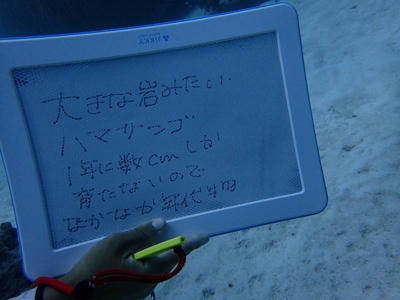 JIKKY
大きな岩みたい
ハマサンゴ
1年に数cmしか
育たないので
なかなか年代物